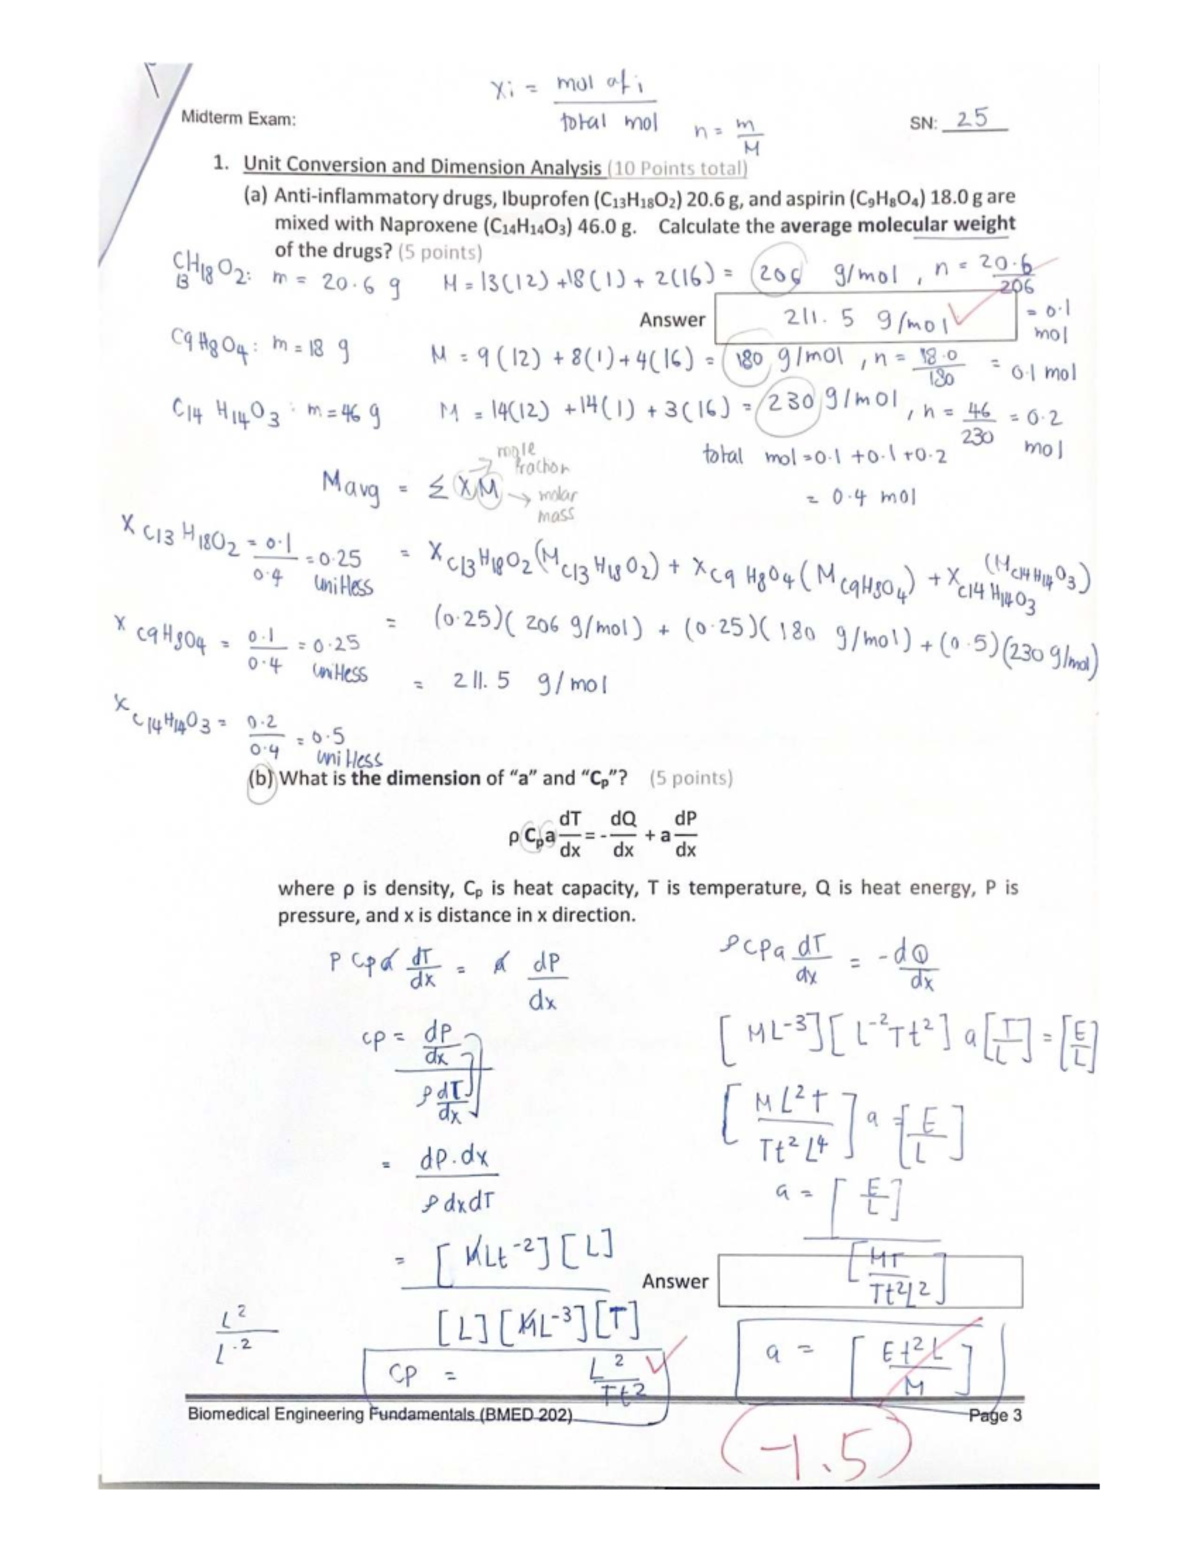 xi = mol of i
total mol
n = m
M
Midterm Exam:
SN: 25
1. Unit Conversion and Dimension Analysis (10 Points total)
(a) Anti-inflammatory drugs, Ibuprofen (C13H18O2) 20.6 g, and aspirin (C9H8O4) 18.0 g are
mixed with Naproxene (C14H14O3) 46.0 g. Calculate the average molecular weight
of the drugs? (5 points)
C13H18O2: m = 20.6 g M = 13(12) + 18(1) + 2(16) = 206 g/mol, n = 20.6
206
= 0.1
mol
Answer 211.5 g/mol
C9H8O4: m = 18 g M = 9(12) + 8(1) + 4(16) = 180 g/mol, n = 18.0
180
= 0.1 mol
C14H14O3: m = 46 g M = 14(12) + 14(1) + 3(16) = 230 g/mol, n = 46
230
= 0.2
mol
total mol = 0.1 + 0.1 + 0.2
= 0.4 mol
mole
fraction
Mavg = Σ XM → molar
mass
X C13H18O2 = 0.1
0.4
= 0.25
unitless
= XC13H18O2 (MC13H18O2) + XC9H8O4 (MC9H8O4) + XC14H14O3 (MC14H14O3)
X C9H8O4 = 0.1
0.4
= 0.25
unitless
= (0.25)(206 g/mol) + (0.25)(180 g/mol) + (0.5)(230 g/mol)
= 211.5 g/mol
X C14H14O3 = 0.2
0.4
= 0.5
unitless
(b) What is the dimension of "a" and "Cp"? (5 points)
ρ Cp a dT/dx = - dQ/dx + a dP/dx
where ρ is density, Cp is heat capacity, T is temperature, Q is heat energy, P is
pressure, and x is distance in x direction.
ρ Cp a dT/dx = a dP/dx
cp = dP/dx
ρ dT/dx
= dP.dx
ρ dx dT
= [MLt-2][L]
[L][ML-3][T]
L2
L-2
CP = L2
Tt2
ρ cp a dT/dx = -dQ/dx
[ML-3][L-2Tt2] a [T/L] = [E/L]
[ML2T
Tt2L4] a = [E/L]
a = [E/L]
[MT
Tt2L2]
Answer
a = [Et2L
M]
Biomedical Engineering Fundamentals (BMED 202)
Page 3
(-1.5)